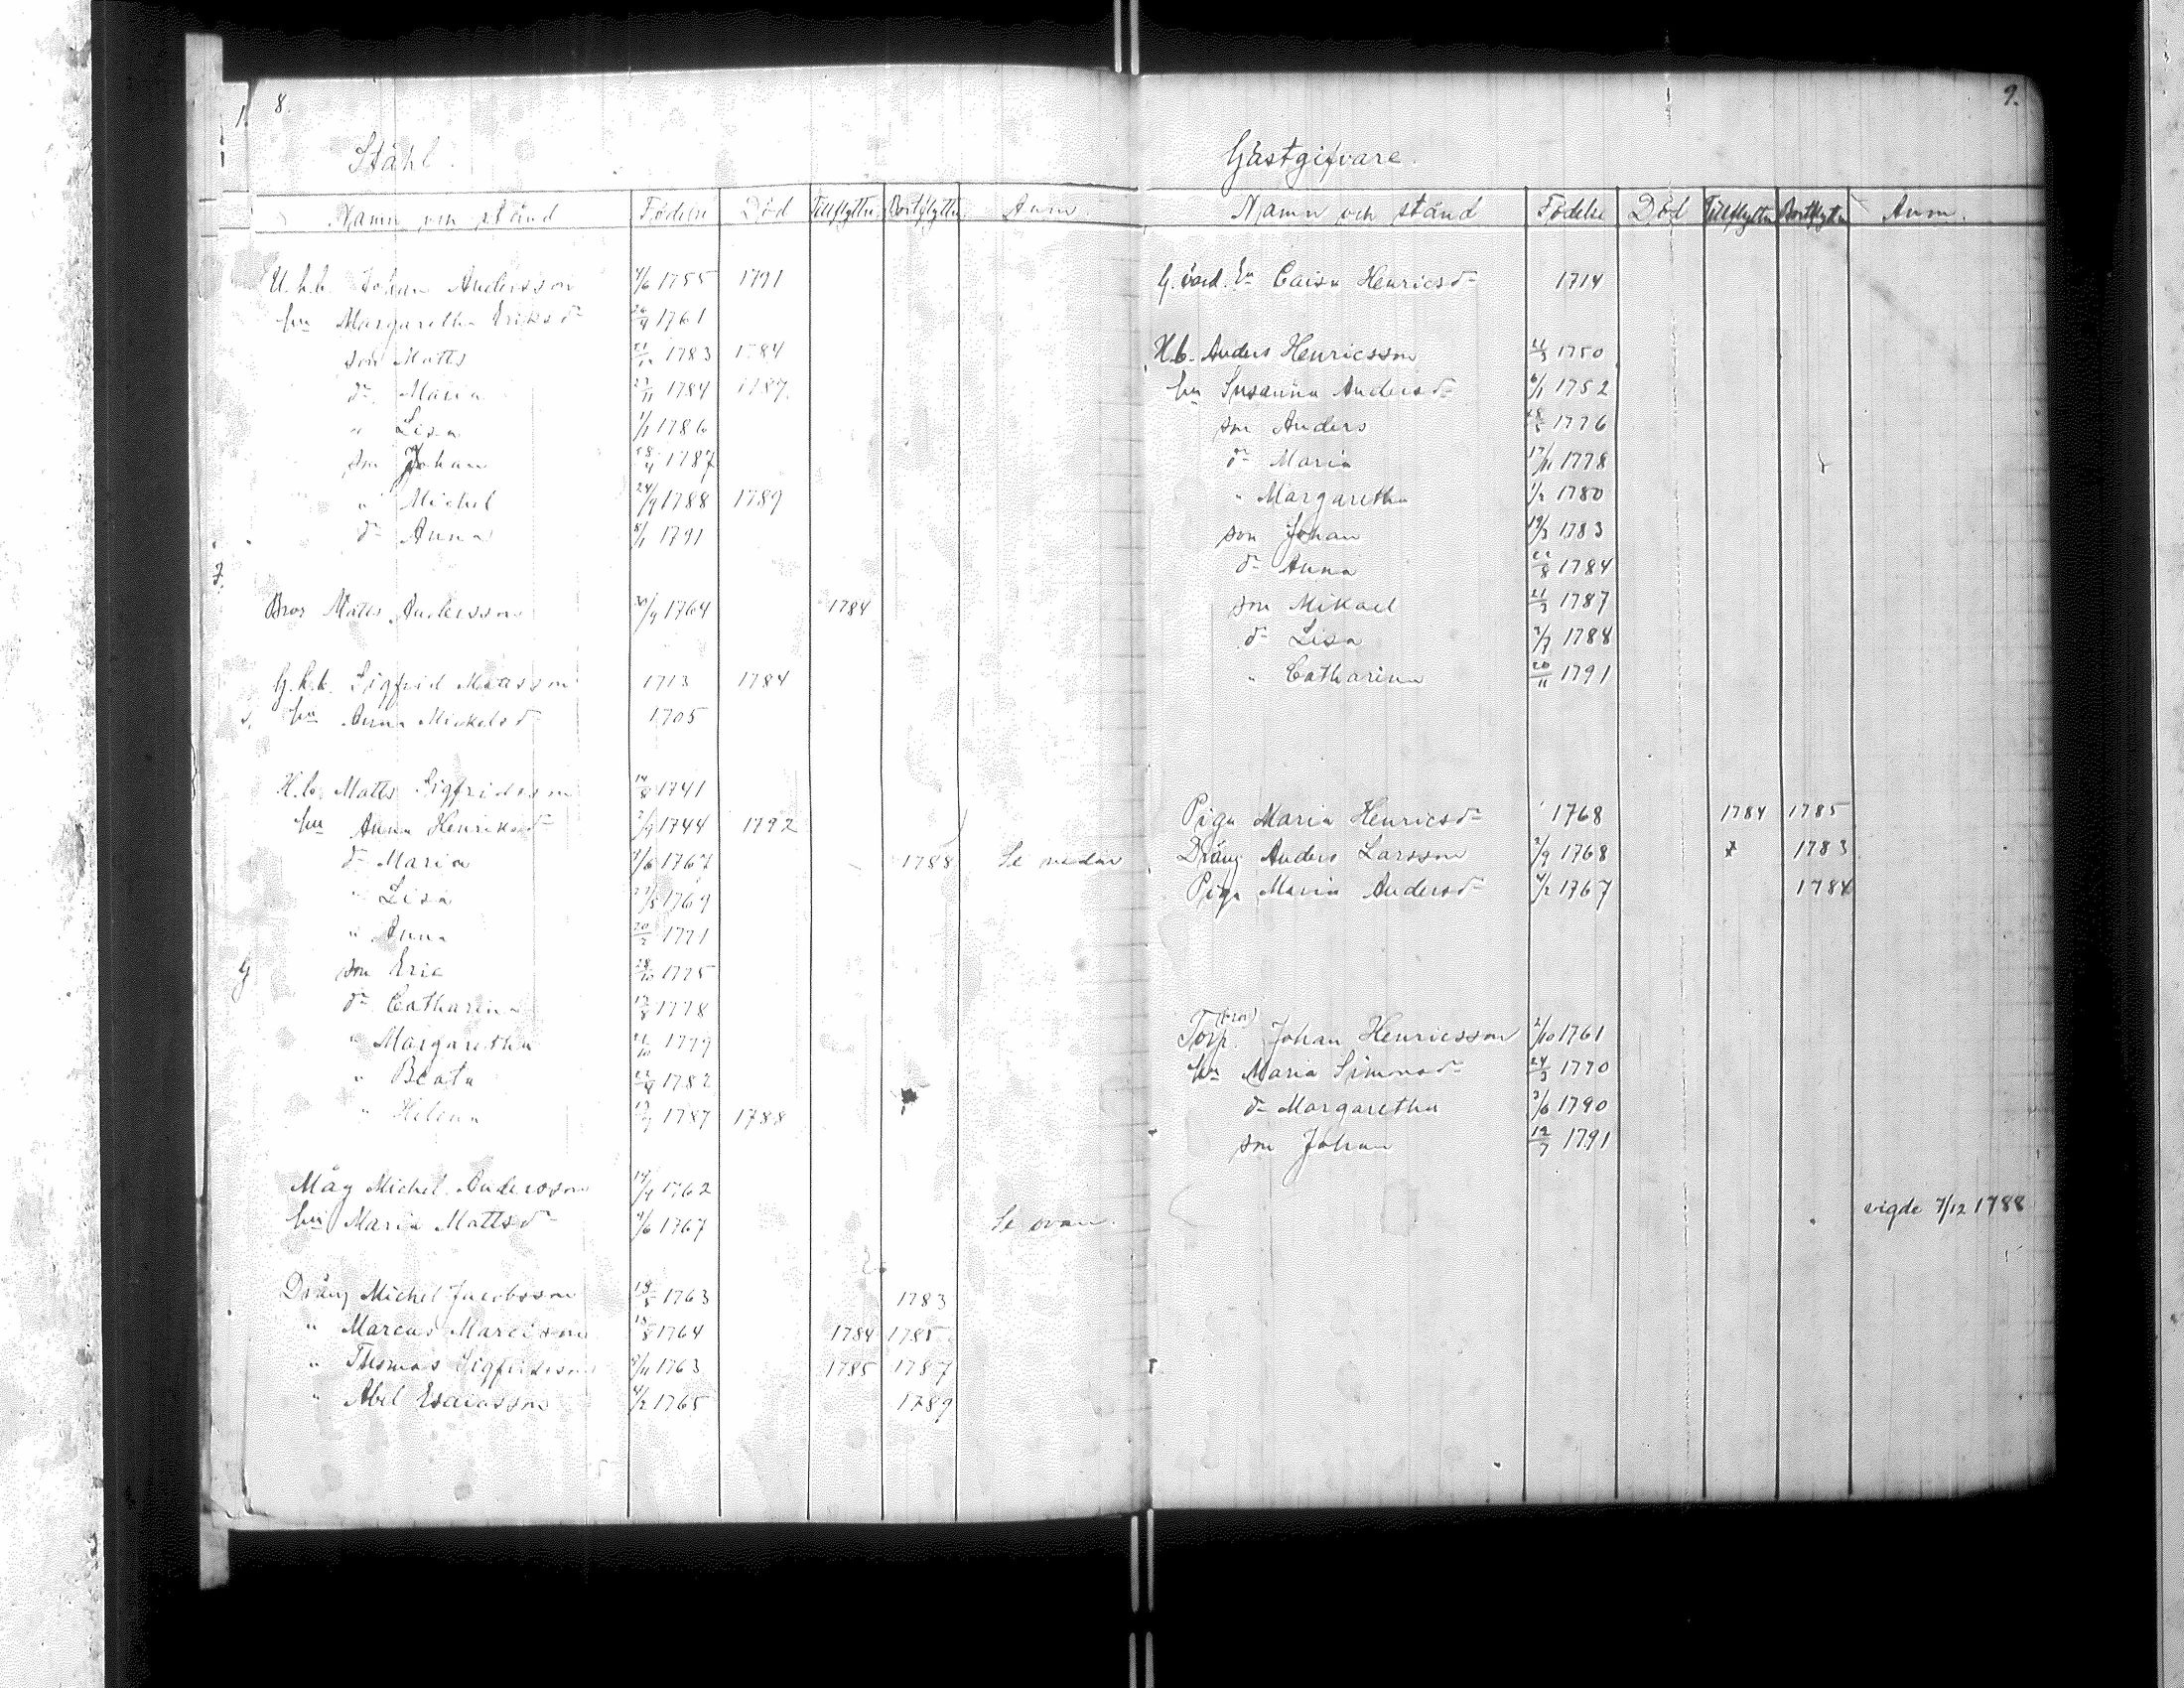 8
Ståhl.
Namn och stånd Födelse Död Tillflyttn. Bortflyttn. Anm
U.h.b. Johan Andersson 4/6 1755 1791
hu Margaretha Eriksdr 26/4 1761
son Matts 1783 1784
dr Maria 27/11 1784 1787.
" Lisa 1/1 1786
son Johan 1787
" Michel 24/9 1788 1789
dr Anna 8/1 1791
Bror Matts Andersson 1764 1784
G.h.b. Sigfrid Mattsson 1713 1784
hu Anna Mickelsdr 1705
H.b. Matts Sigfridsson 14/8 1741
hu Anna Henriksdr 1744 1792
dr Maria 9/6 1767 1788 Se nedan
" Lisa 1769
" Anna 20/2 1771
son Eric 28/10 1775
dr Catharina 1778
" Margaretha 1779
" Beata 1782
" Helena 1787 1788
Måg Michel Andersson 1762
hu Maria Mattsdr 9/6 1767 Se ovan.
Dräng Michel Jacobsson 1763 1783
" Marcus Marcisson 1764 1784 1785
" Thomas Sigfridsson 1763 1785 1787
" Abel Esaiasson 4/2 1765 1789
9.
Gästgifvare.
Namn och stånd Födelse Död Tillflyttn Bortflyttn Anm.
G. värd. En Caisa Henricsdr 1714
H.b. Anders Henricsson 1750
hu Susanna Andersdr 6/1 1752
son Anders 1776
dr Maria 17/11 1778
" Margaretha 1/2 1780
son Johan 19/3 1783
dr Anna 22/8 1784
son Mikael 21/3 1787
dr Lisa 1788
" Catharina 20/11 1791
Piga Maria Henricsdr 1768 1784 1785
Dräng Anders Larsson 2/9 1768 1783
Piga Maria Andersdr 4/2 1767 1784
Torp. (bror) Johan Henricsson 2/10 1761
hu Maria Simonsdr 24/3 1770
dr Margaretha 3/6 1790
son Johan 12/7 1791
vigde 7/12 1788